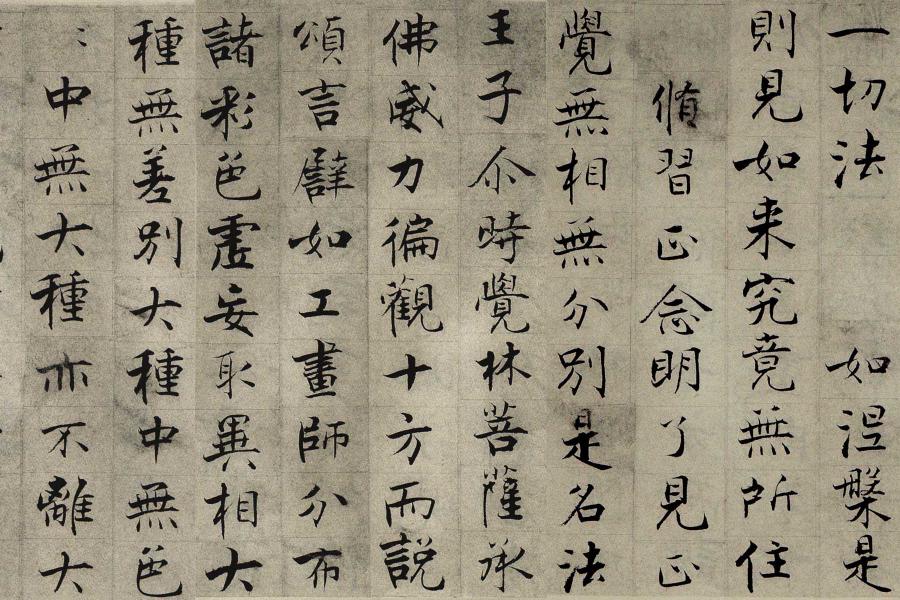 一切法 如涅槃是
則見如来究竟無所住
脩習正念明了見正
覺無相無分別是名法
王子尒時覺林菩薩承
佛威力徧觀十方而說
頌言譬如工畫師分布
諸彩色虛妄取異相大
種無差別大種中無色
色中無大種亦不離大